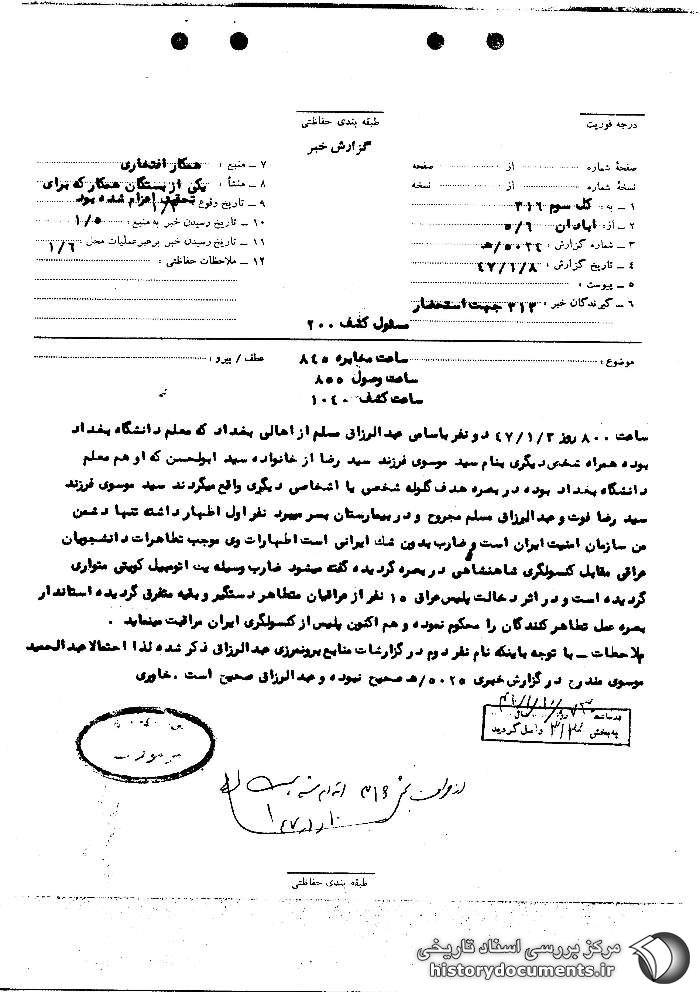 طبقه بندی حفاظتی
درجه فوریت
گزارش خبر
صفحهٔ شماره از صفحه
نسخهٔ شماره از نسخه
۱ – به : کل سوم ۳۱۶
۲ – از: ابادان ۵/ه‍
۳ – شماره گزارش : ۵۰۲۴/ه‍
۴ – تاریخ گزارش : ۴۷/۱/۸
۵ – پیوست :
۶ – گیرندگان خبر : ۳۱۳ جهت استحضار
۷ – منبع : همکار افتخاری
۸ – منشأ : یکی از بستگان همکار که برای
تحقیق اعزام شده بود
۹ – تاریخ وقوع
۱۰ – تاریخ رسیدن خبر به منبع : ۱/۵
۱۱ – تاریخ رسیدن خبر برهبر عملیات محل ۱/۶
۱۲ – ملاحظات حفاظتی :
مسئول کشف ۲۰۰
موضوع : ساعت مخابره ۸۴۵ عطف / پیرو :
ساعت وصول ۸۵۵
ساعت کشف ۱۰۴۰
ساعت ۸۰۰ روز ۴۷/۱/۲ دو نفر باسامی عبدالرزاق مسلم از اهالی بغداد که معلم دانشگاه بغداد
بوده همراه شخص دیگری بنام سید موسوی فرزند سید رضا از خانواده سید ابولحسن که او هم معلم
دانشگاه بغداد بوده در بصره هدف گوله شخصی یا اشخاصی دیگری واقع میگردند سید موسوی فرزند
سید رضا فوت و عبدالرزاق مسلم مجروح و در بیمارستان بسر میبرد نفر اول اظهار داشته تنها دشمن
من سازمان امنیت ایران است و ضارب بدون شك ایرانی است اظهارات وی موجب تظاهرات دانشجویان
عراقی مقابل کنسولگری شاهنشاهی در بصره گردیده گفته میشود ضارب وسیله یت اتومبیل کویتی متواری
گردیده است و در اثر دخالت پلیس عراق ۱۵ نفر از عراقیان متظاهر دستگیر و بقیه متفرق گردیده استاندار
بصره عمل تظاهر کنندگان را محکوم نموده و هم اکنون پلیس از کنسولگری ایران مراقبت مینماید .
ملاحظات – با توجه باینکه نام نفر دوم در گزارشات منابع برونمرزی عبدالرزاق ذکر شده لذا احتمالا عبدالحمید
موسوی مندرج در گزارش خبری ۵۰۲۵/ه‍ صحیح نبوده و عبدالرزاق صحیح است . خاوری
به بخش ۳۱۳ واصل گردید
طبقه بندی حفاظتی
مرکز بررسی اسناد تاریخی
historydocuments.ir